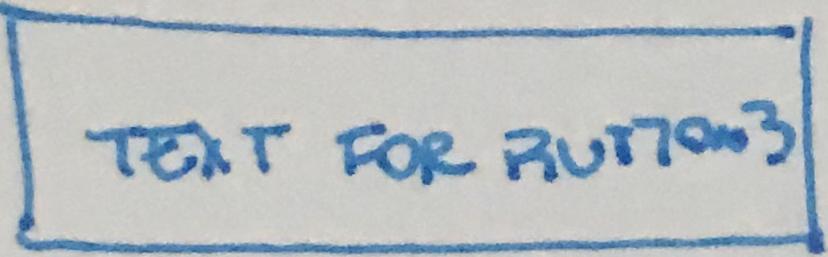 TEXT FOR BUTTON 3